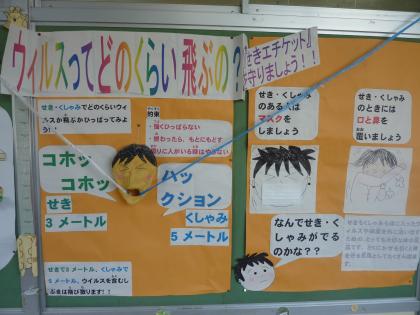 ウィルスってどのくらい飛ぶの?
『せきエチケット』
を守りましょう!!
せき・くしゃみでどのくらいウィ
ルスが飛ぶかひっぱってみよ
う!!
約束
・強くひっぱらない
・終わったら、もとにもどす
コホッ
コホッ
せき
3メートル
ハッ
クション
くしゃみ
5メートル
せきで3メートル、くしゃみで
5メートル、ウイルスを含むし
ぶきは飛び散ります!!
せき・くしゃみ
のある人は
マスクを
しましょう
せき・くしゃみ
のときには
口と鼻を
覆いましょう
なんでせき・く
しゃみがでる
のかな??